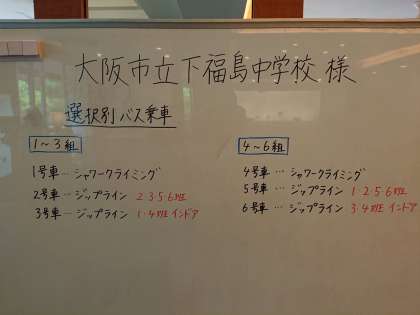 大阪市立下福島中学校 様
選択別 バス乗車
1～3組
1号車…シャワークライミング
2号車…ジップライン 2・3・5・6班
3号車…ジップライン 1・4班 インドア
4～6組
4号車…シャワークライミング
5号車…ジップライン 1・2・5・6班
6号車…ジップライン 3・4班 インドア